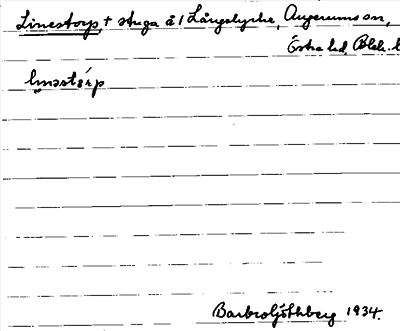 Linestorp, + stuga å 1 Långelycke, Augerums sn,
Östra hd, Blek. l
linəstårp
Barbro Göthberg 1934.